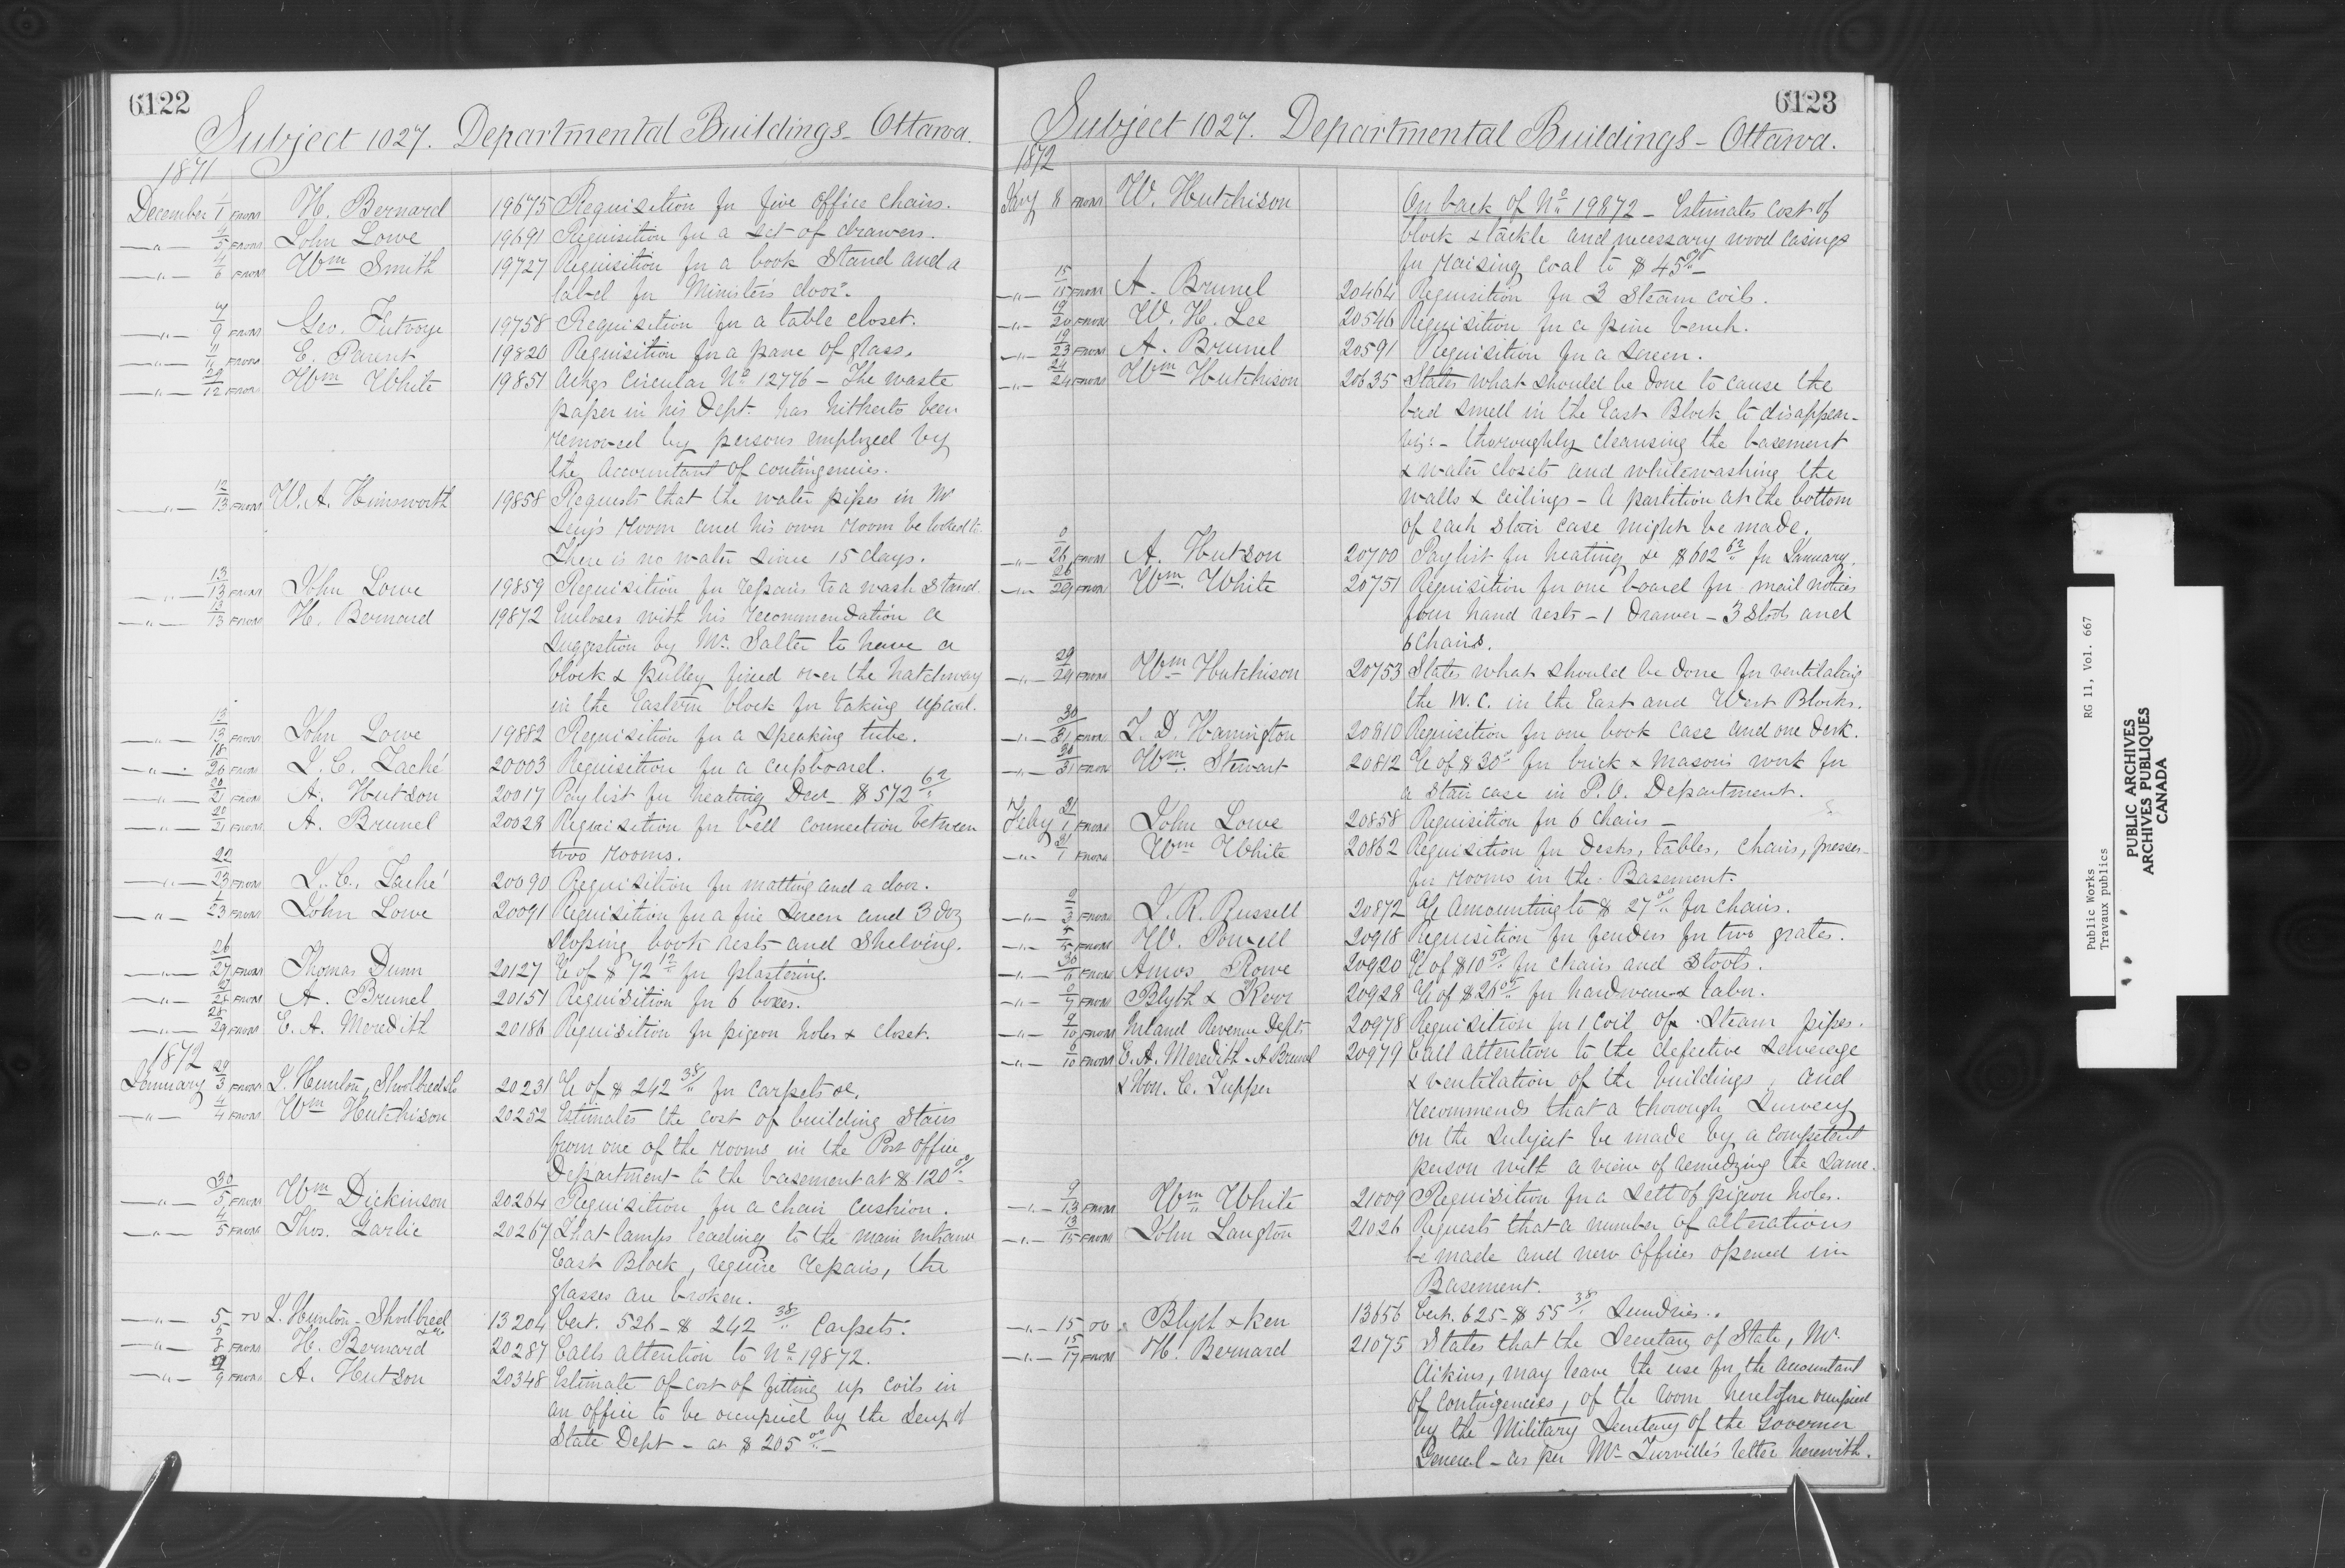 6122
Subject 1027. Departmental Buildings - Ottawa.
1871
December 1/1 FROM H. Bernard 19675 Requisition for five office chairs.
—"— 4/5 FROM John Lowe 19691 Requisition for a set of drawers.
—"— 4/6 FROM Wm Smith 19727 Requisition for a book stand and a
label for Minister's door.
—"— 9 FROM Geo. Futvoye 19758 Requisition for a table closet.
—"— FROM E. Parent 19820 Requisition for a pane of glass.
—"— 29/12 FROM Wm White 19851 Ackgs Circular No 12776 - The waste
paper in his Dept. has hitherto been
removed by persons employed by
the Accountant of contingencies.
—"— 12/13 FROM W. A. Himsworth 19858 Requests that the water pipes in Mr
Lery's room and his own room be looked to.
There is no water since 15 days.
—"— 13/13 FROM John Lowe 19859 Requisition for repairs to a wash stand
—"— 13/13 FROM H. Bernard 19872 Incloses with his recommendation a
suggestion by Mr. Salter to have a
block & pulley fixed over the hatchway
in the Eastern block for taking up coal.
—"— 13/13 FROM John Lowe 19882 Requisition for a speaking tube.
—"— 18/20 FROM J. C. Taché 20003 Requisition for a cupboard.
—"— 20/21 FROM A. Hutson 20017 Pay list for heating Decr - $572 62/"
—"— 20/21 FROM A. Brunel 20028 Requisition for bell connection between
two rooms.
—"— 22/23 FROM J. C. Taché 20090 Requisition for matting and a door.
—"— 23 FROM John Lowe 20091 Requisition for a fire screen and 3 doz
sloping book rests and shelving.
—"— 26/27 FROM Thomas Dunn 20127 a/c of $72 12/" for plastering.
—"— 28 FROM A. Brunel 20151 Requisition for 6 boxes.
—"— 28/29 FROM E. A. Meredith 20186 Requisition for pigeon holes & closet.
1872
January 29/3 FROM J. Hunton, Shoolbred & Co 20231 a/c of $242 38/" for carpets &c.
—"— 4/4 FROM Wm Hutchison 20252 Estimates the cost of building stairs
from one of the rooms in the Post Office
Department to the basement at $120 00/"
—"— 30/5 FROM Wm Dickinson 20264 Requisition for a chair cushion.
—"— 4/5 FROM Thos. Garlic 20267 That lamps leading to the main entrance
East Block, require repairs, the
glasses are broken.
—"— 5 TO J. Hunton - Shoolbred & Co 13204 Cert. 526 - $242 38/" Carpets.
—"— 5/8 FROM H. Bernard 20287 Calls attention to No 19872.
—"— 9 FROM A. Hutson 20348 Estimate of cost of fitting up coils in
an office to be occupied by the Secy of
State Dept - at $205 00/" -
6123
Subject 1027. Departmental Buildings - Ottawa.
1872
8 FROM W. Hutchison On back of No 19872 - Estimates cost of
block & tackle and necessary wood casings
for raising coal to $45 -
—"— 15 FROM A. Brunel 20464 Requisition for 3 steam coils.
—"— 19/20 FROM W. H. Lee 20546 Requisition for a pine bench.
—"— 19/23 FROM A. Brunel 20591 Requisition for a screen.
—"— 24/24 FROM Wm Hutchison 20635 States what should be done to cause the
bad smell in the East Block to disappear -
viz: - thoroughly cleansing the basement
& water closets and whitewashing the
walls & ceilings - A partition at the bottom
of each stair case might be made.
—"— 26 FROM A. Hutson 20700 Pay list for heating &c $602 62/" for January.
—"— 26/29 FROM Wm. White 20751 Requisition for one board for mail notices
four hand rests - 1 Drawer - 3 Stools and
6 chairs.
—"— 29/29 FROM Wm Hutchison 20753 States what should be done for ventilating
the W. C. in the East and West Blocks.
—"— 30/31 FROM T. D. Harrington 20810 Requisition for one book case and one desk.
—"— 30/31 FROM Wm. Stewart 20812 a/c of $30 for brick & mason's work for
a stair case in P. O. Department.
Feby 31/1 FROM John Lowe 20858 Requisition for 6 chairs -
—"— 31/1 FROM Wm White 20862 Requisition for desks, tables, chairs, presses -
for rooms in the Basement.
—"— 2/3 FROM J. R. Russell 20872 a/c Amounting to $27 00/" for chairs.
—"— 5 FROM W. Powell 20918 Requisition for fenders for two grates.
—"— 30/6 FROM Amos Rowe 20920 a/c of $10 50/" for chairs and stools.
—"— 7 FROM Blyth & Kerr 20928 a/c of $26 05/" for hardware & labor.
—"— 9/10 FROM Inland Revenue Dept 20978 Requisition for 1 Coil of steam pipes.
—"— 6/10 FROM E. A. Meredith - A Brunel 20979 Call attention to the defective sewerage
& Hon. C. Tupper & ventilation of the buildings, and
recommends that a thorough survey
on the subject be made by a competent
person with a view of remedying the same.
—"— 9/13 FROM Wm White 21009 Requisition for a sett of pigeon holes.
—"— 13/15 FROM John Langton 21026 Requests that a number of alterations
be made and new offices opened in
Basement.
—"— 15 TO Blyth & Kerr 13656 Cert. 625 - $55 38/" Sundries.
—"— 15/17 FROM H. Bernard 21075 States that the Secretary of State, Mr.
Aikins, may leave the use for the accountant
of contingencies, of the room heretofore occupied
by the Military Secretary of the Governor
General - as per Mr Turville's letter herewith.
Public Works RG 11, Vol. 667
Travaux publics
PUBLIC ARCHIVES
ARCHIVES PUBLIQUES
CANADA